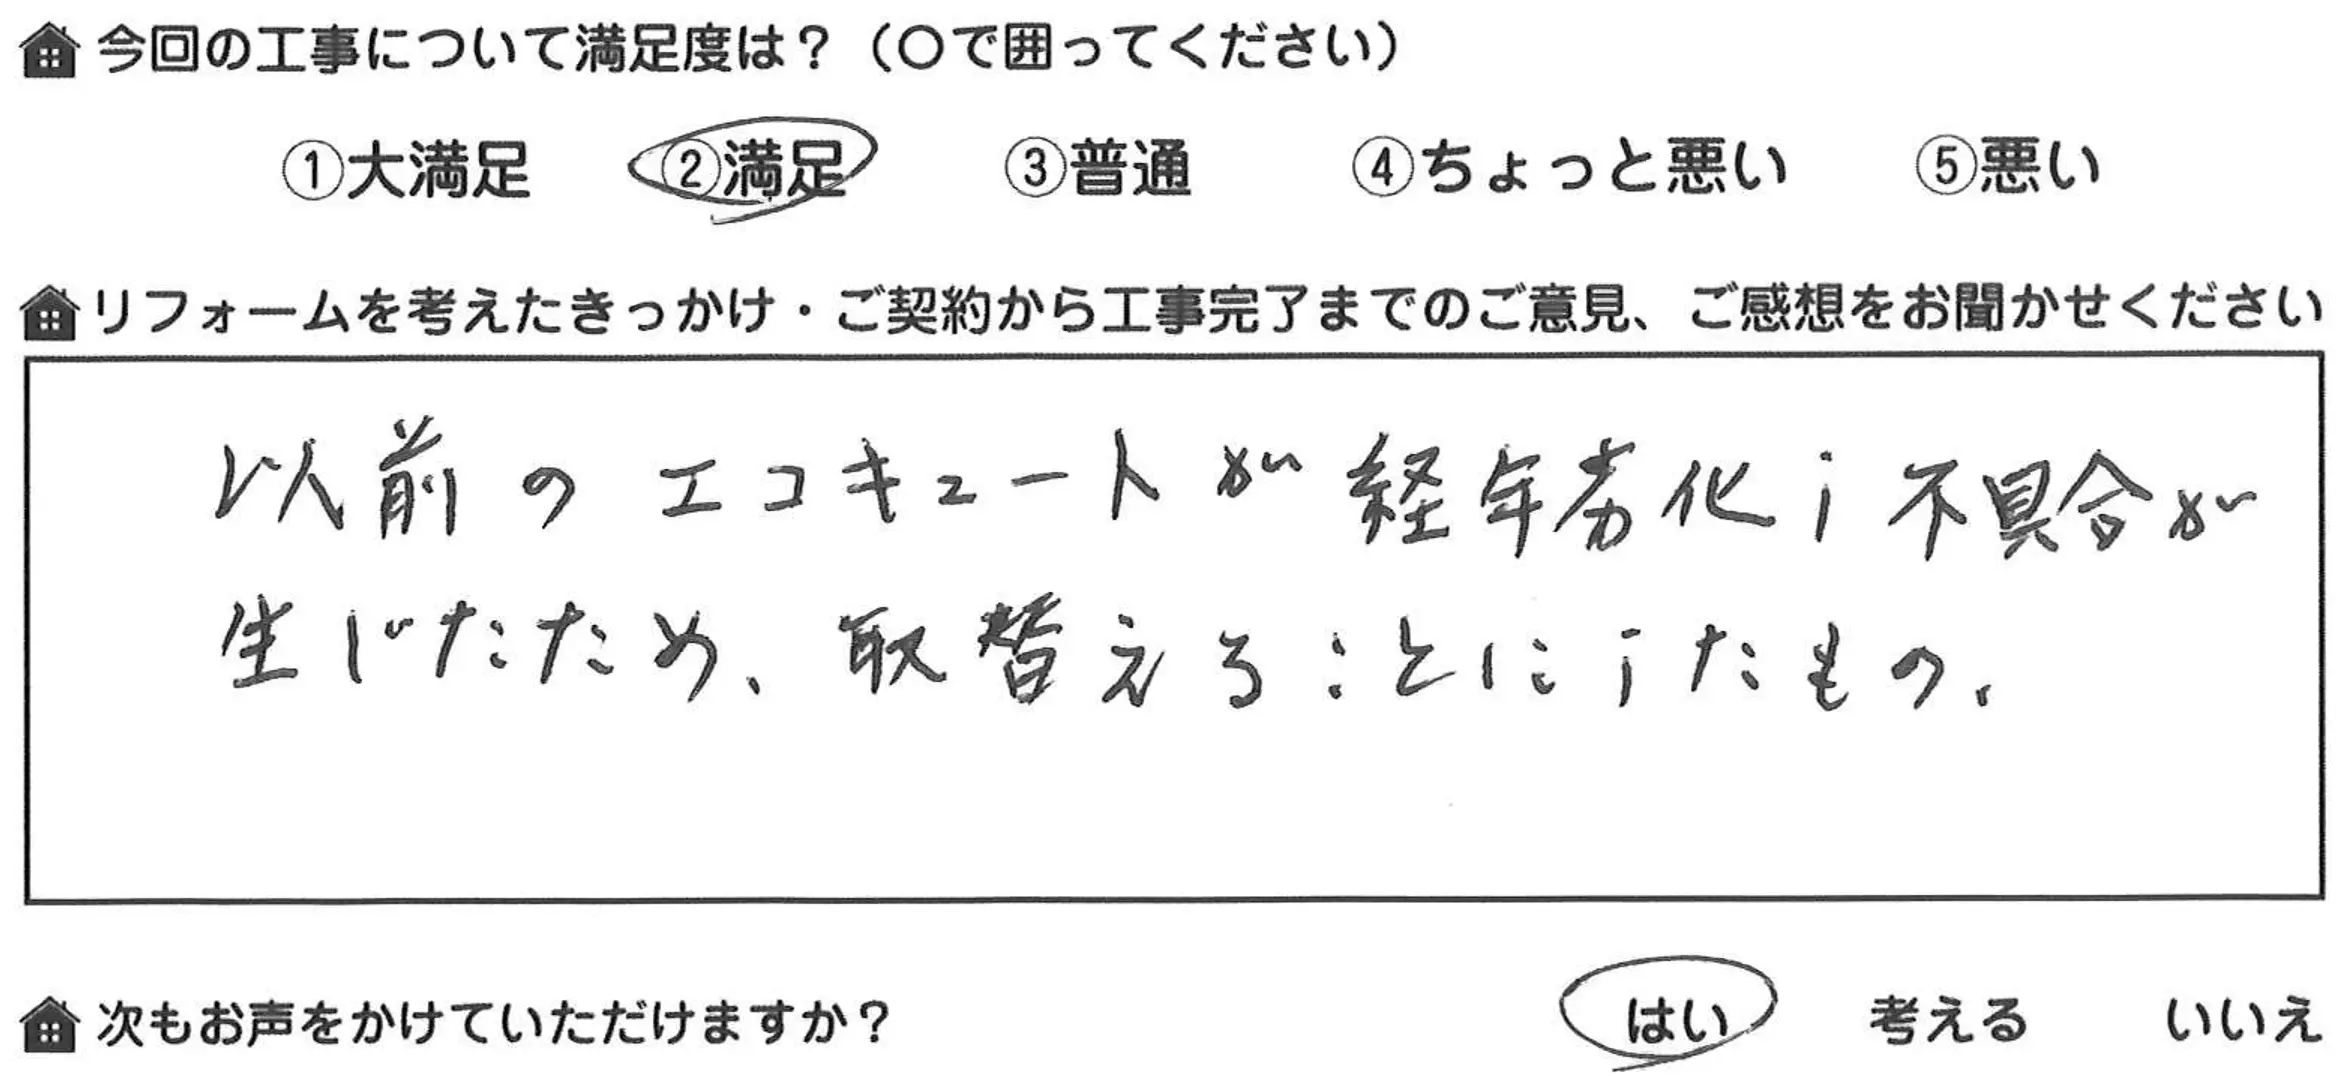 今回の工事について満足度は？（〇で囲ってください）
①大満足 ②満足 ③普通 ④ちょっと悪い ⑤悪い
リフォームを考えたきっかけ・ご契約から工事完了までのご意見、ご感想をお聞かせください
以前のエコキュートが経年劣化し不具合が
生じたため、取替えることにしたもの。
次もお声をかけていただけますか？ はい 考える いいえ